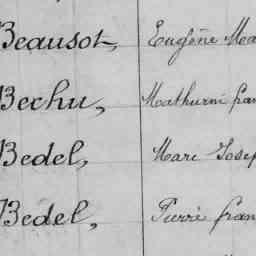 Beausot, Eugène Ma
Bechu, Mathurin fran
Bedel, Marc Josep
Bedel, Pierre fran